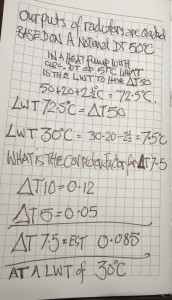 OUTPUTS of radiators are quoted
BASED ON A NOTIONAL DT 50°C
IN A HEAT PUMP WITH
DT OF 5°C WHAT
IS THE LWT TO HAVE ΔT50
50+20+2½°C = 72.5°C.
LWT 72.5°C = ΔT50
LWT 30°C = 30-20-2½ = 7.5°C
WHAT IS THE for ΔT 7.5
ΔT10 = 0.12
ΔT5 = 0.05
ΔT 7.5 = EST 0.085
AT A LWT of 30°C